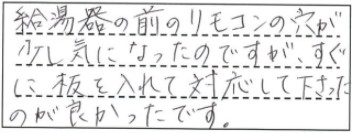 給湯器の前のリモコンの穴が
少し気になったのですが、すぐ
に、板を入れて対応して下さった
のが良かったです。